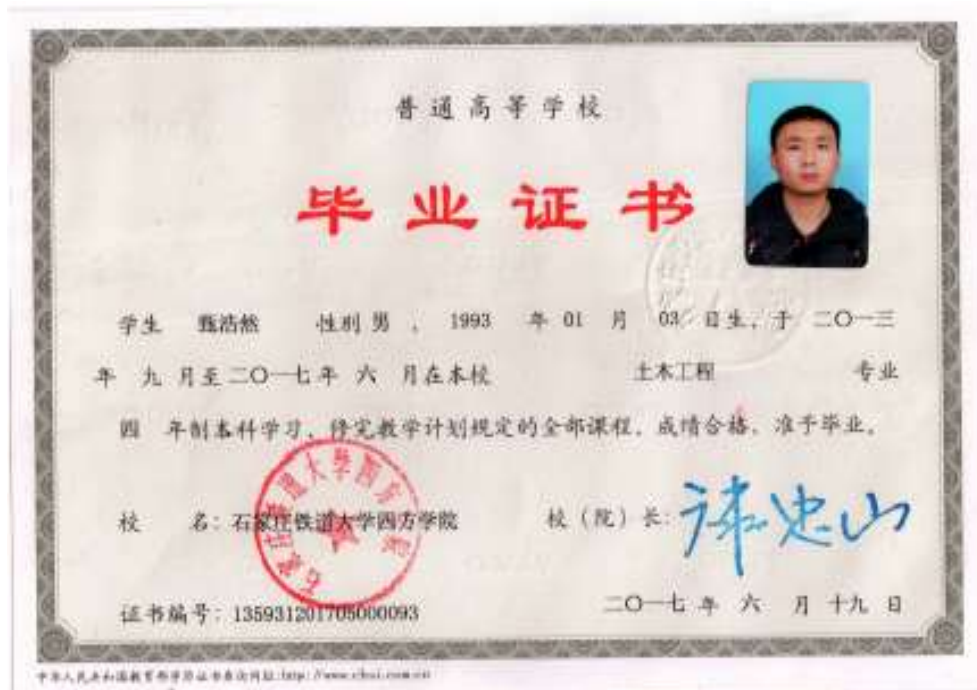 普通高等学校
毕业证书
学生 甄浩然 性别 男 ，1993 年 01 月 03 日生，于 二〇一三
年 九 月至 二〇一七 年 六 月在本校 土木工程 专业
四 年制本科学习，修完教学计划规定的全部课程，成绩合格，准予毕业。
校 名：石家庄铁道大学四方学院 校（院）长：
石家庄铁道大学四方学院
证书编号：135931201705000093 二〇一七 年 六 月 十九 日
中华人民共和国教育部学历证书查询网址:http://www.chsi.com.cn